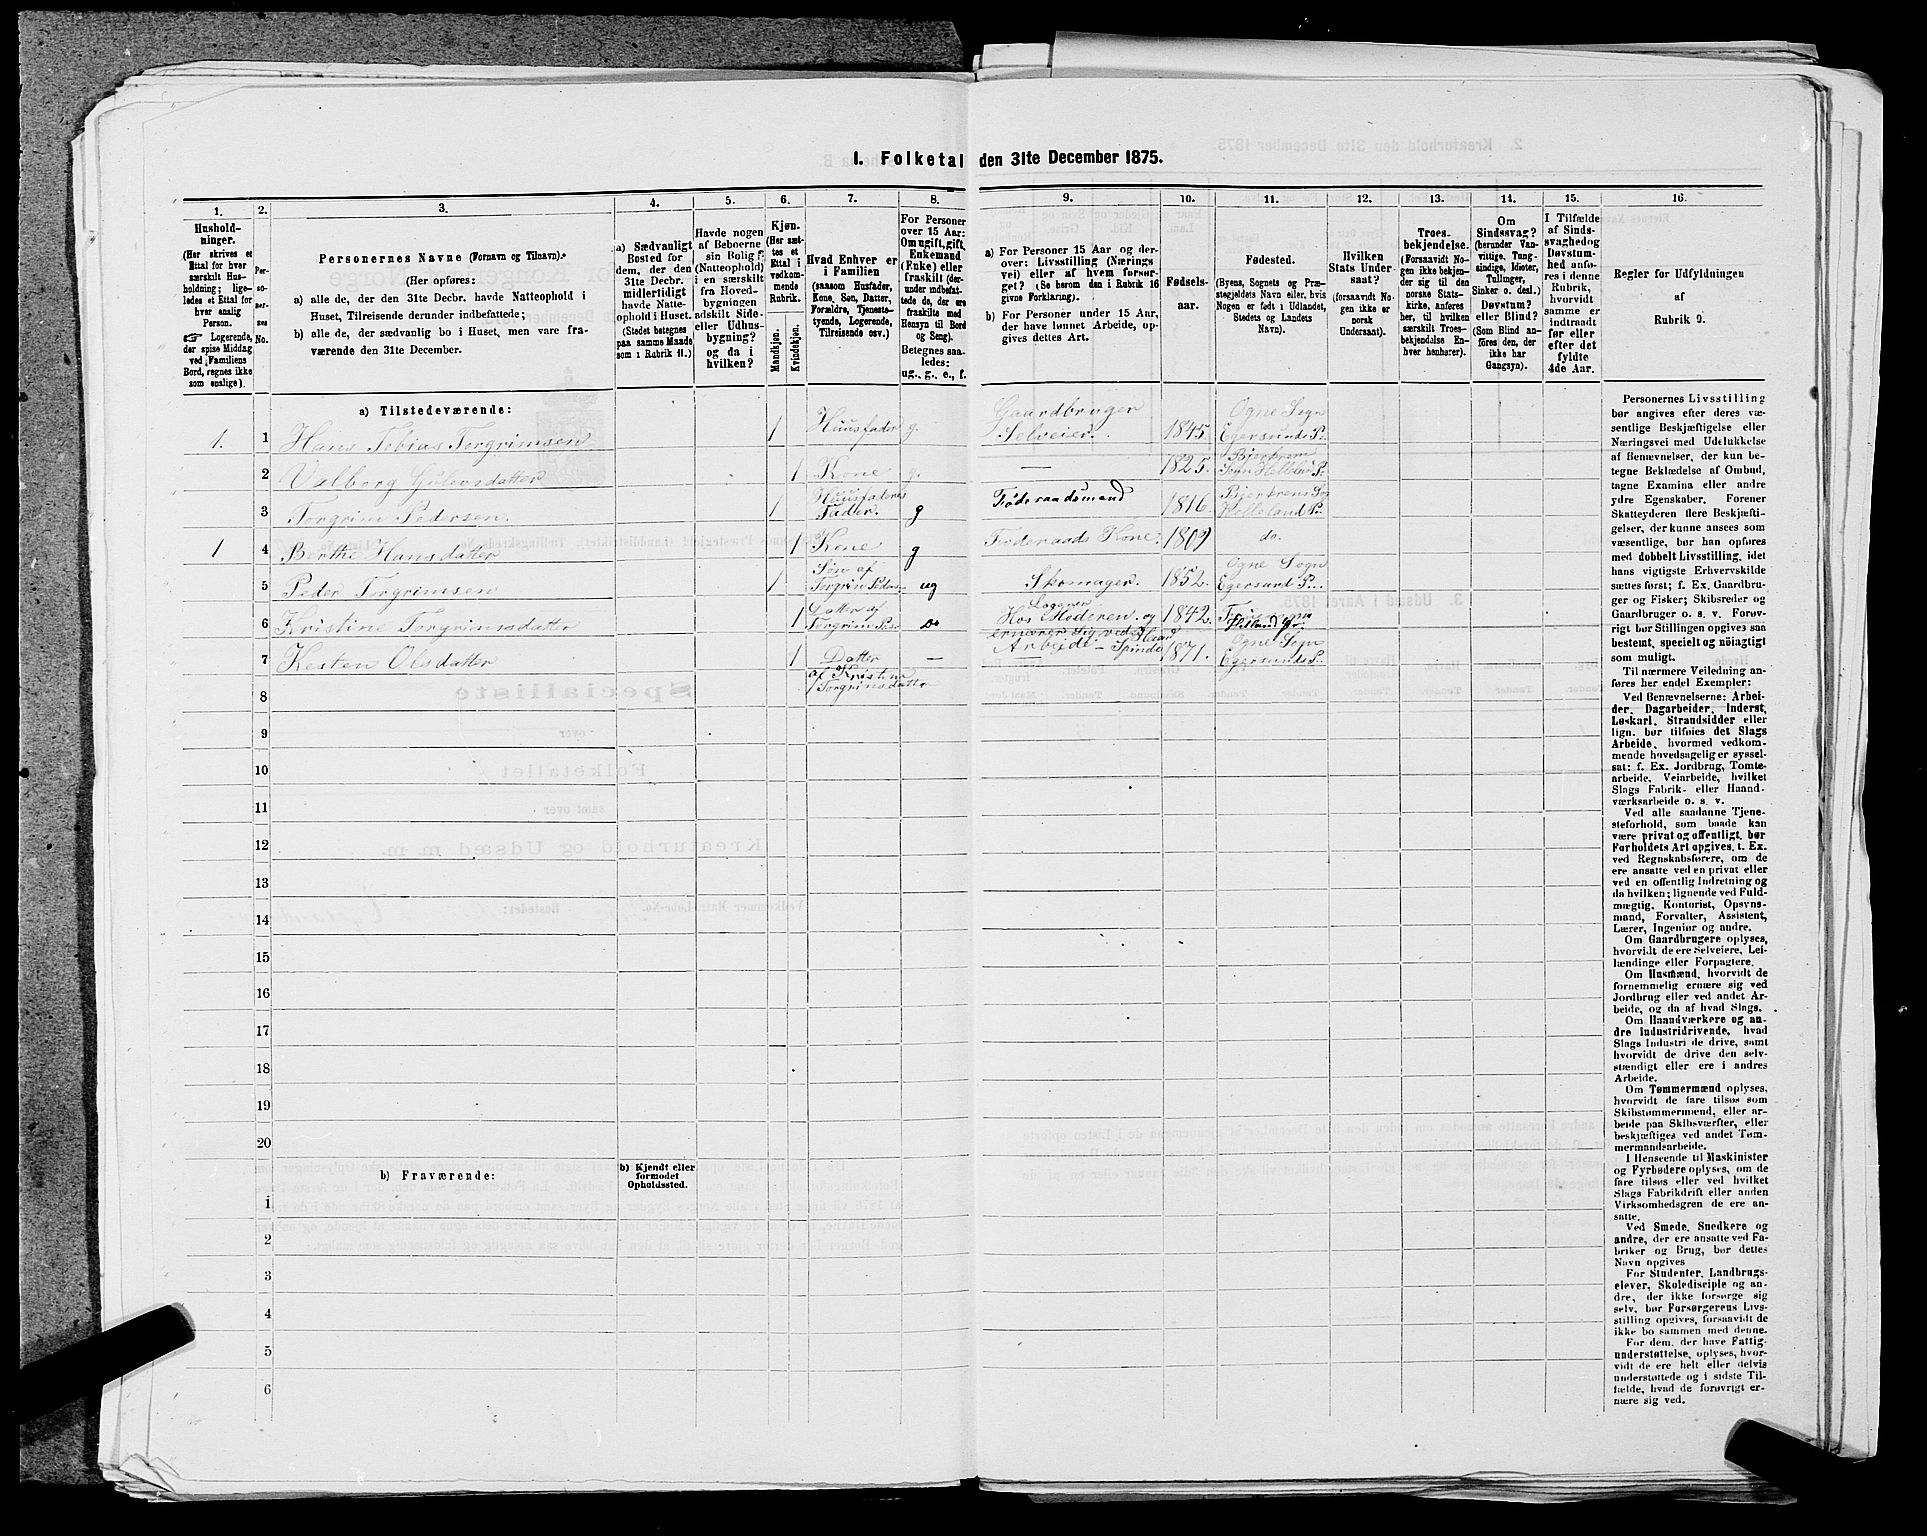 1. Folketal den 31te December 1875.
1.
Husholdninger.
(Her skrives et
Ettal for hver
særskilt Husholdning; ligeledes et Ettal for
hver enslig
Person.
☞ Logerende,
der spise Middag
ved Familiens
Bord, regnes ikke
som enslige).
2.
Personernes No.
3.
Personernes Navne (Fornavn og Tilnavn).
(Her opføres:
a) alle de, der den 31te Decbr. havde Natteophold i
Huset, Tilreisende derunder indbefattede;
b) alle de, der sædvanlig bo i Huset, men vare fraværende den 31te December.
4.
a) Sædvanligt
Bosted for
dem, der den
31te Decbr.
midlertidigt
havde Natteophold i Huset.
(Stedet betegnes
paa samme Maade
som i Rubrik 11.)
5.
Havde nogen
af Beboerne
sin Bolig
(Natteophold)
i en særskilt
fra Hovedbygningen
adskilt Side-
eller Udhusbygning?
og da i
hvilken?
6.
Kjøn.
(Her sættes et
Ettal i
vedkommende
Rubrik.
Mandkjøn.
Kvindekjøn.
7.
Hvad Enhver er
i Familien
(saasom Husfader,
Kone, Søn, Datter,
Forældre, Tjenestetyende, Logerende,
Tilreisende osv.)
8.
For Personer
over 15 Aar:
Om ugift, gift,
Enkemand
(Enke) eller
fraskilt (derunder indbefattede de, der ere
fraskilte med
Hensyn til Bord
og Seng).
Betegnes saaledes:
ug., g., e., f.
9.
a) For Personer 15 Aar og derover: Livsstilling (Næringsvei) eller af hvem forsørget? (Se herom den i Rubrik 16
givne Forklaring).
b) For Personer under 15 Aar,
der have lønnet Arbeide, opgives dettes Art.
10.
Fødselsaar.
11.
Fødested.
(Byens, Sognets og Præstegjeldets Navn eller, hvis
Nogen er født i Udlandet,
Stedets og Landets
Navn).
12.
Hvilken
Stats Undersaat?
(forsaavidt Nogen ikke er
norsk
Undersaat).
13.
Troesbekjendelse.
(Forsaavidt Nogen ikke bekjender sig til den
norske Statskirke, anføres
her, til hvilken
særskilt Troesbekjendelse Enhver henhører).
14.
Om
Sindssvag?
(herunder Vanvittige, Tungsindige, Idioter,
Tullinger,
Sinker o. desl.)
Døvstum?
eller Blind?
(Som Blind anføres den, der
ikke har
Gangsyn).
15.
I Tilfælde
af Sindssvaghed og
Døvstumhed anføres i denne
Rubrik,
hvorvidt
samme er
indtraadt
før eller
efter det
fyldte
4de Aar.
16.
Regler for Udfyldningen
af
Rubrik 9.
a) Tilstedeværende:
1. 1 Hans Tobias Torgrimsen 1 Huusfader g. Gaardbruger Selveier. 1845. Ogne Sogn Egersunds P:
2 Valborg Gulevsdatter 1 Kone g. — 1825. Bjerkrem Sogn Helleland P:
3 Torgrim Pedersen. 1 Huusfaderes Fader. g Føderaadsmand 1816. Bjerkrens S. Helleland P:
1 4 Berthe Hansdatter 1 Kone g Føderaads Kone. 1809 do.
5 Peder Torgrimsen 1 Søn af Torgrim Peders- ug Skomager. 1852. Ogne Sogn Egersund P:.
6 Kristine Torgrimsdatter 1 Datter af Torgrim P:s: Do Loggner Hos Moderen og ernærer sig ved Haand Arbeide – Spinde 1842.
7 Kesten Olsdatter 1 Datter af Kristine Torgrimsdatter — — 1871. Ogne Sogn Egersunds P:
8
9
10
11
12
13
14
15
16
17
18
19
20
b) Fraværende:
b) Kjendt eller
formodet
Opholdssted.
1
2
3
4
5
6
Personernes Livsstilling
bør angives efter deres væsentlige Beskjæftigelse eller
Næringsvei med Udelukkelse
af Benævnelser, der kun betegne Beklædelse af Ombud,
tagne Examina eller andre
ydre Egenskaber. Forener
Skatteyderen flere Beskjæftigelser, der kunne ansees som
væsentlige, bør han opføres
med dobbelt Livsstilling, idet
hans vigtigste Erhvervskilde
sættes først; f. Ex. Gaardbruger og Fisker; Skibsreder og
Gaardbruger o. s. v. Forøvrigt bør Stillingen opgives saa
bestemt, specielt og nöiagtigt
som muligt.
Til nærmere Veiledning anføres her endel Exempler:
Ved Benævnelserne: Arbeider, Dagarbeider, Inderst,
Løskarl, Strandsidder eller
lign. bør tilføies det Slags
Arbeide, hvormed vedkommende hovedsagelig er sysselsat; f. Ex. Jordbrug, Tomtearbeide, Veiarbeide, hvilket
Slags Fabrik- eller Haandværksarbeide o. s. v.
Ved alle saadanne Tjenesteforhold, som baade kan
være privat og offentligt, bør
Forholdets Art opgives, t. Ex.
ved Regnskabsførere, om de
ere ansatte ved en privat eller
ved en offentlig Indretning og
da hvilken; lignende ved Fuldmægtig, Kontorist, Opsynsmand, Forvalter, Assistent,
Lærer, Ingeniør og andre.
Om Gaardbrugere oplyses,
hvorvidt de ere Selveiere, Leilændinge eller Forpagtere.
Om Husmænd, hvorvidt de
fornemmelig ernære sig ved
Jordbrug eller ved andet Arbeide, og da af hvad Slags.
Om Haandværkere og andre Industridrivende, hvad
Slags Industri de drive, samt
hvorvidt de drive den selvstændigt eller ere i andres
Arbeide.
Om Tømmermænd oplyses,
hvorvidt de fare tilsøs som
Skibstømmermænd, eller arbeide paa Skibsværfter, eller
beskjæftiges ved andet Tømmermandsarbeide.
I Henseende til Maskinister
og Fyrbødere oplyses, om de
fare tilsøs eller ved hvilket
Slags Fabrikdrift eller anden
Virksomhedsgren de ere ansatte.
Ved Smede, Snedkere og
andre, der ere ansatte ved Fabriker og Brug, bør dettes
Navn opgives
For Studenter, Landbrugselever, Skoledisciple og andre, der ikke forsørge sig
selv, bør Forsørgerens Livsstilling opgives, forsaavidt de
ikke bo sammen med denne.
For dem, der have Fattigunderstøttelse, oplyses, hvorvidt de ere helt eller delvis
understøttede og i sidste Tilfælde, hvad de forøvrigt ernære sig ved.